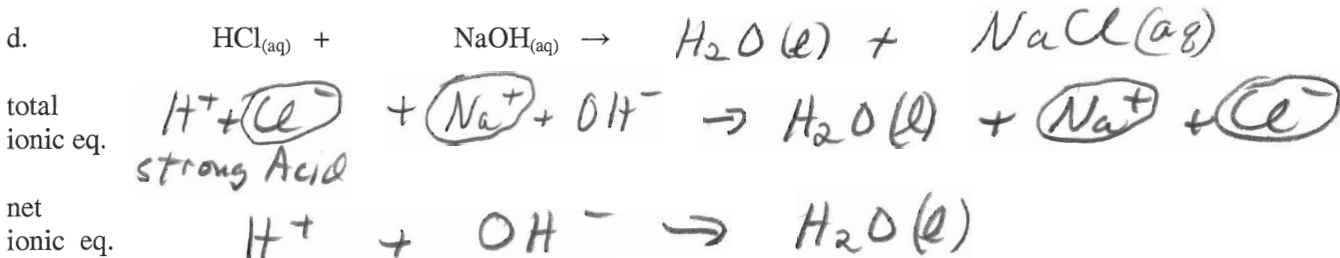 d. HCl(aq) + NaOH(aq) → H₂O(l) + NaCl(aq)
total
ionic eq. H⁺ + Cl⁻ + Na⁺ + OH⁻ → H₂O(l) + Na⁺ + Cl⁻
strong Acid
net
ionic eq. H⁺ + OH⁻ → H₂O(l)